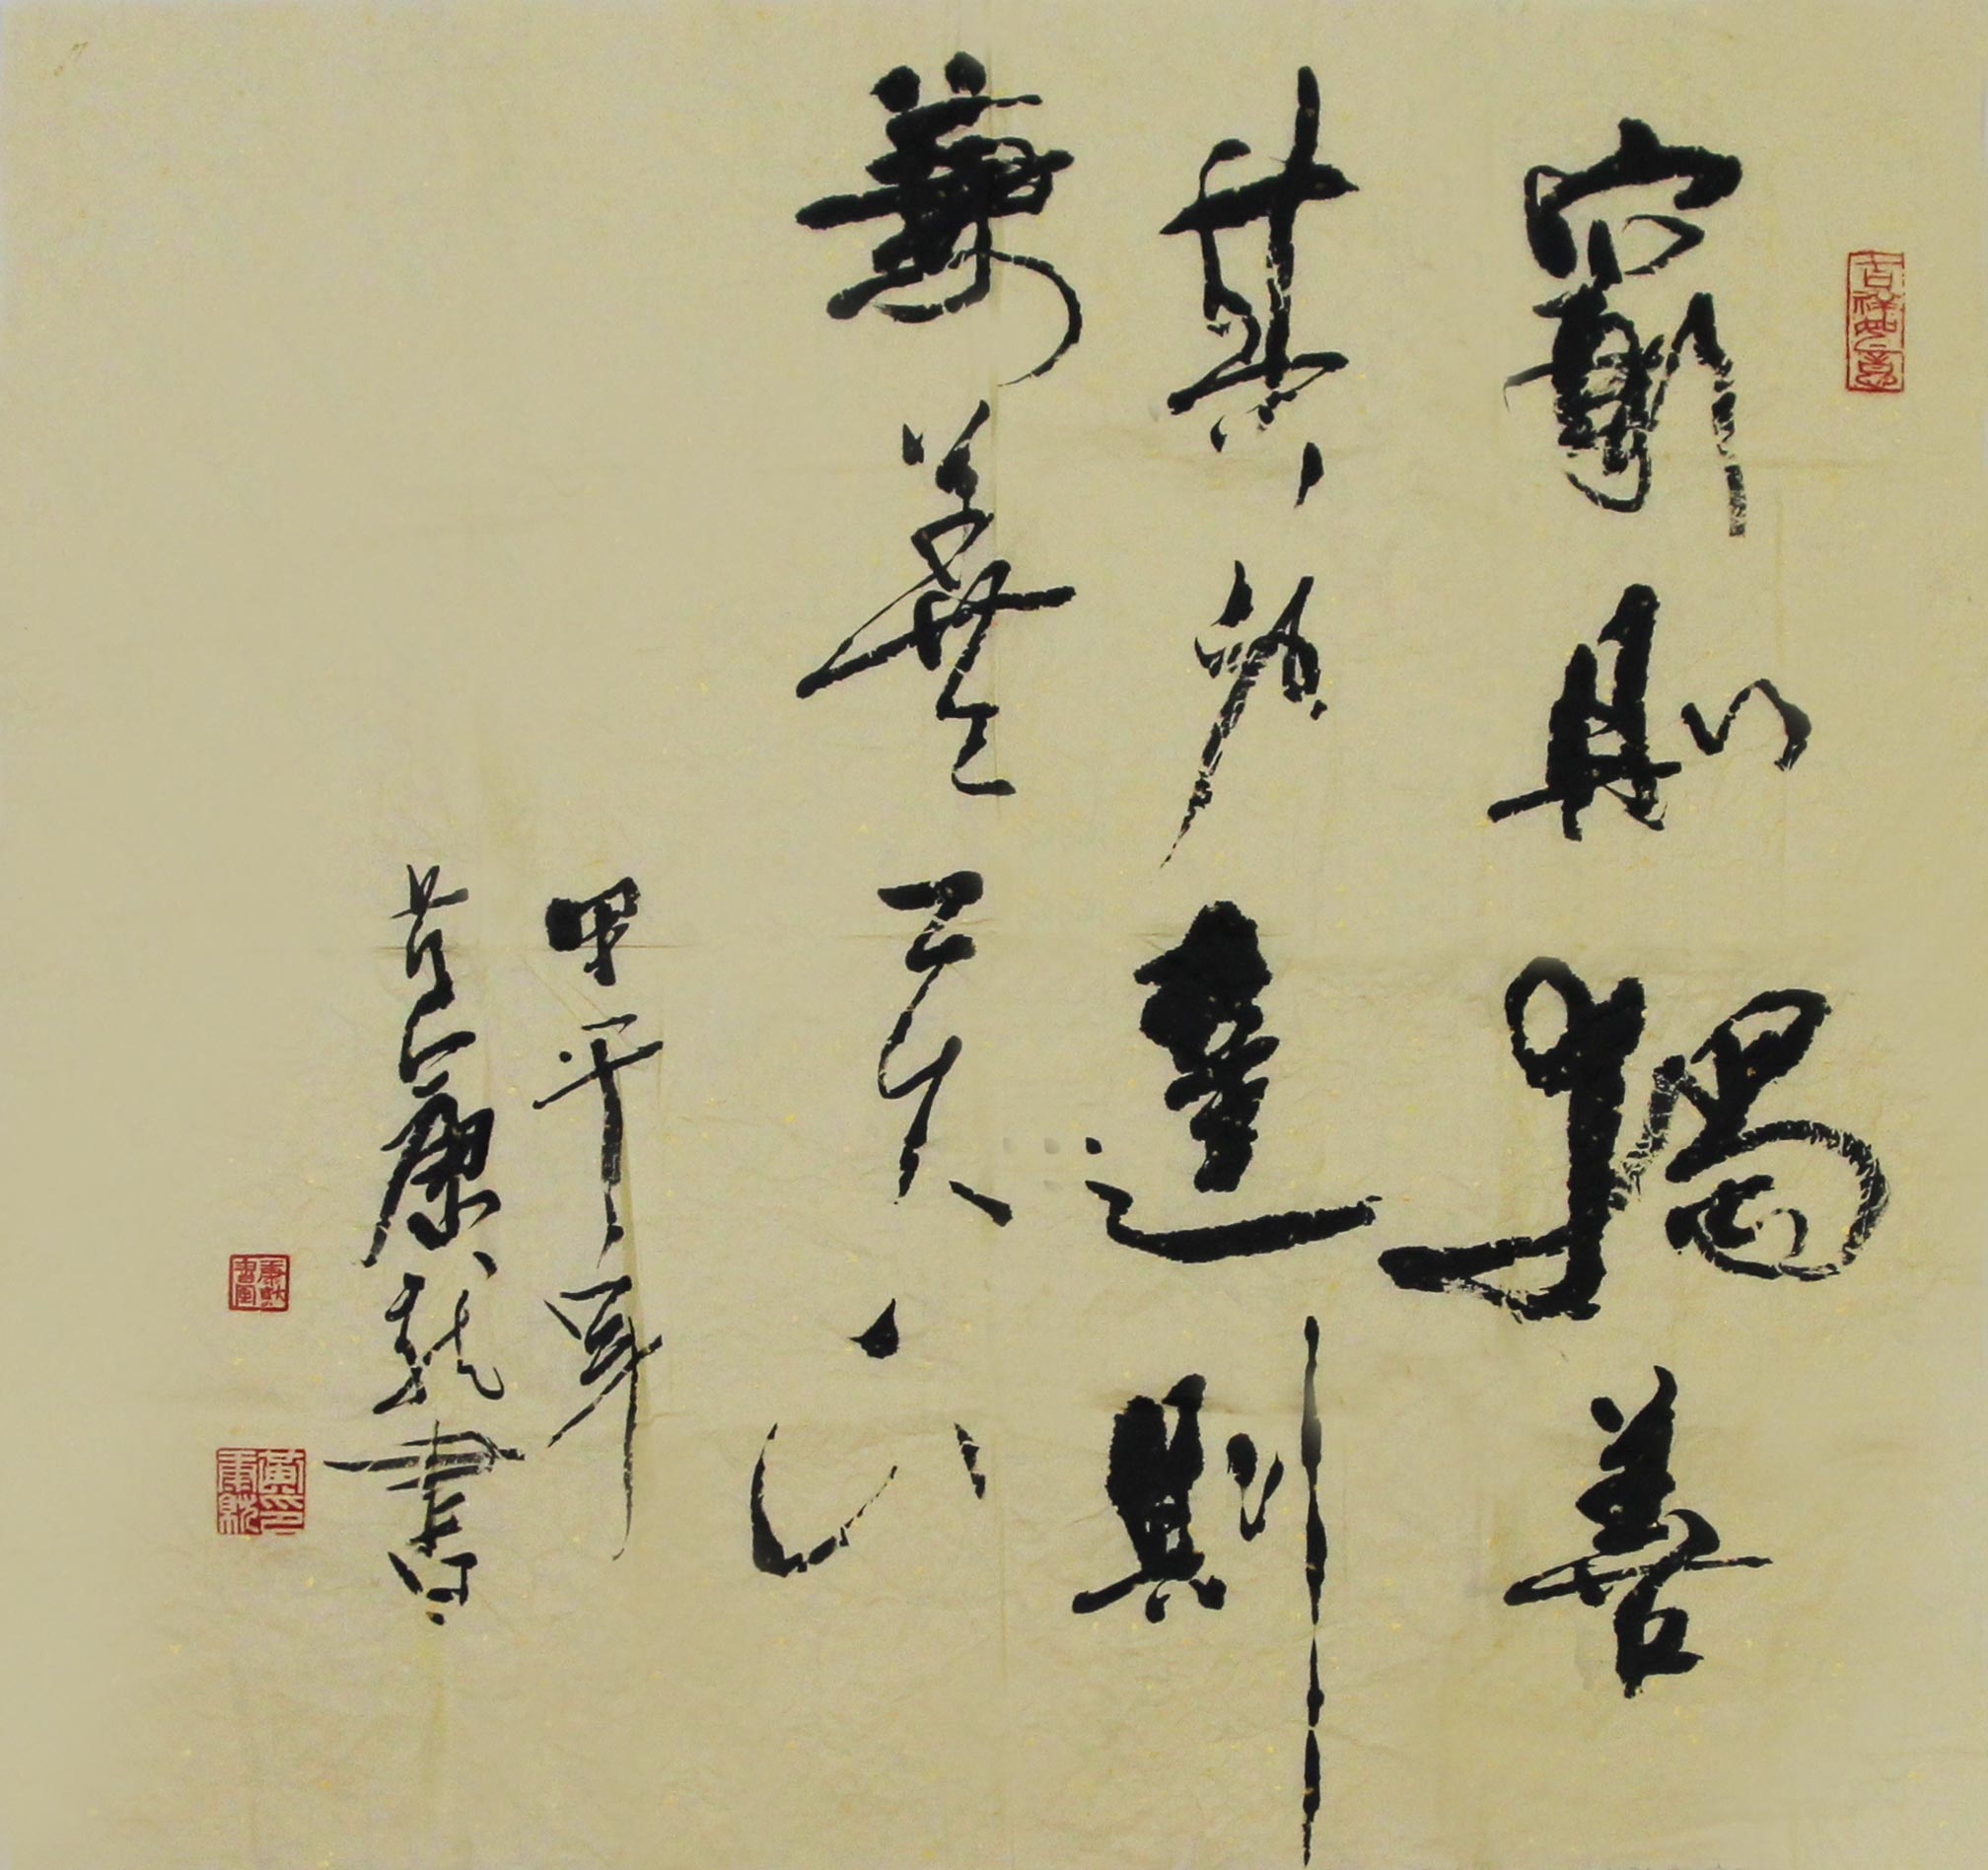 吉祥如意
窮則獨善
其身達則
兼善天下
甲午年
康書